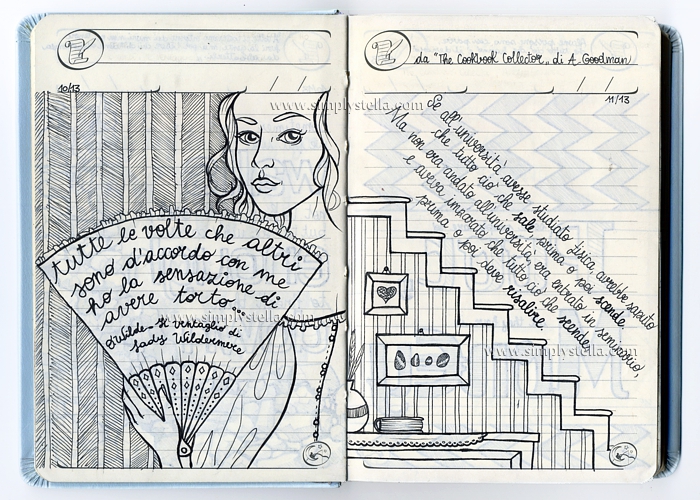 10/13
www.simplystella.com
tutte le volte che altri
sono d'accordo con me
ho la sensazione di
avere torto..
www.simplystella.com
O.Wilde - Il ventaglio di
Lady Wildermere
da "The Cookbook Collector" di A. Goodman
11/13
www.simplystella.com
Se all'università avesse studiato fisica, avrebbe saputo
che tutto ciò che sale prima o poi scende.
Ma non era andato all'università, era entrato in seminario,
e aveva imparato che tutto ciò che scende
prima o poi deve risalire.
www.simplystella.com